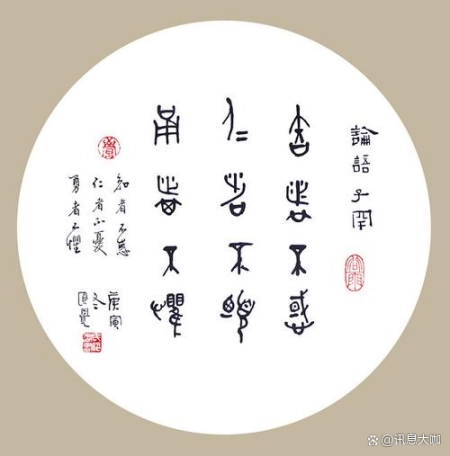 論語子罕
知者不惑
仁者不憂
勇者不懼
知者不惑
仁者不憂
勇者不懼
庚寅
冬
@讯息大咖